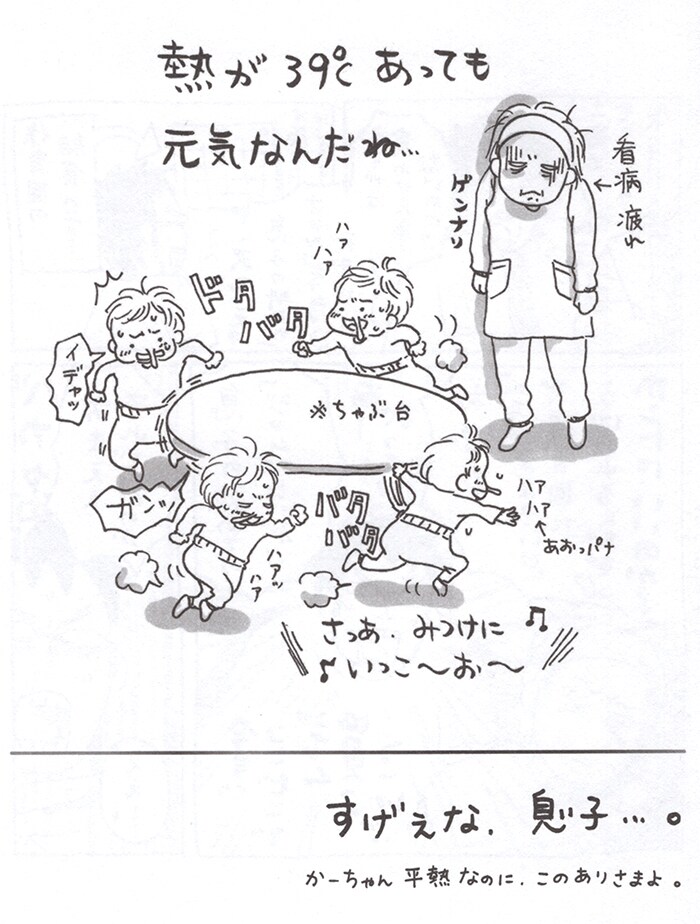 熱が39℃あっても
元気なんだね…
看病疲れ
ゲンナリ
ハァ
ハァ
ドタ
バタ
イデャッ
※ちゃぶ台
ガンッ
バタ
バタ
ハァ
ハァ
あおっパナ
ハァッ
ハァ
さっあ、みつけに♫
♪いっこ〜お〜
すげぇな、息子…。
かーちゃん平熱なのに、このありさまよ。